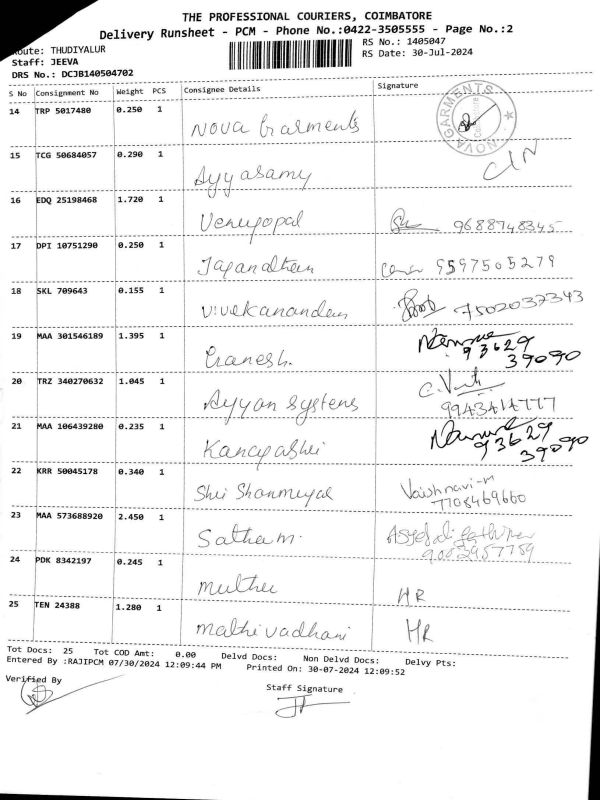 THE PROFESSIONAL COURIERS, COIMBATORE
Delivery Runsheet - PCM - Phone No.:0422-3505555 - Page No.:2
Route: THUDIYALUR
RS No.: 1405047
Staff: JEEVA
RS Date: 30-Jul-2024
DRS No.: DCJB140504702
S No Consignment No Weight PCS Consignee Details Signature
14 TRP 5017480 0.250 1 Nova Garments NOVA GARMENTS
15 TCG 50684057 0.290 1 Ayyasamy
16 EDQ 25198468 1.720 1 Venugopal 9688748345
17 DPI 10751290 0.250 1 9597505279
18 SKL 709643 0.155 1 Vivekanandan 7502037343
19 MAA 301546189 1.395 1 Ganesh. 93629
39090
20 TRZ 340270632 1.045 1 Ayyan Systems
9943414777
21 MAA 106439280 0.235 1 93629
39090
22 KRR 50045178 0.340 1 Shri Vaishnavi-M
7708469660
23 MAA 573688920 2.450 1
24 PDK 8342197 0.245 1 Muthu HR
25 TEN 24388 1.280 1 Mathivadhani HR
Tot Docs: 25 Tot COD Amt: 0.00 Delvd Docs: Non Delvd Docs: Delvy Pts:
Entered By :RAJIPCM 07/30/2024 12:09:44 PM Printed On: 30-07-2024 12:09:52
Verified By
Staff Signature